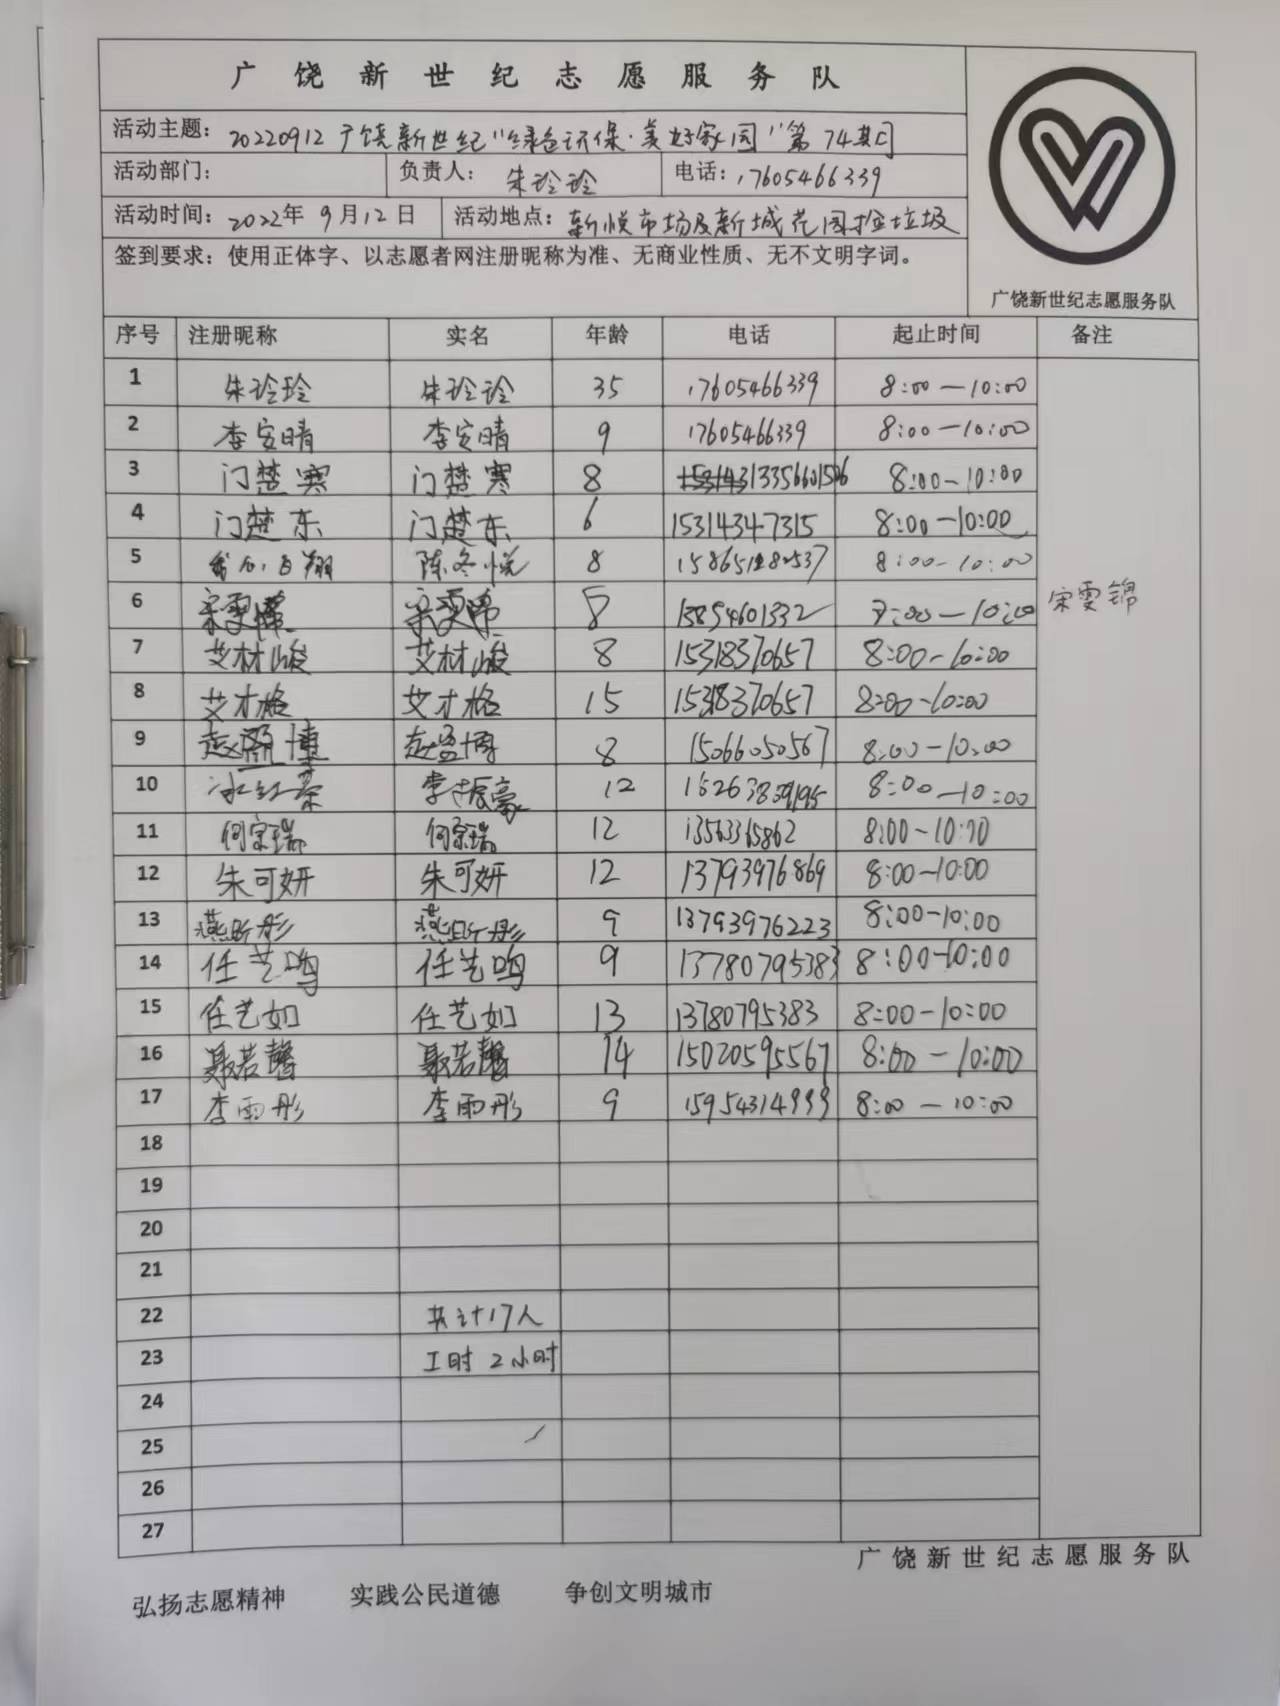 广饶新世纪志愿服务队
活动主题：20220912广饶新世纪“绿色环保·美好家园”第74期
活动部门： 负责人：朱玲玲 电话：17605466339
活动时间：2022年9月12日 活动地点：新悦市场及新城花园捡垃圾
签到要求：使用正体字、以志愿者网注册昵称为准、无商业性质、无不文明字词。
广饶新世纪志愿服务队
序号 注册昵称 实名 年龄 电话 起止时间 备注
1 朱玲玲 朱玲玲 35 17605466339 8:00—10:00
2 李安晴 李安晴 9 17605466339 8:00—10:00
3 门楚寒 门楚寒 8 13356601506 8:00—10:00
4 门楚东 门楚东 6 15314347315 8:00—10:00
5 陈冬悦 8 8:00—10:00
6 8 15854601332 8:00—10:00 宋雯锦
7 艾材峻 艾材峻 8 15318370657 8:00—10:00
8 艾才格 艾才格 15 15318370657 8:00—10:00
9 赵盈博 8 15066050567 8:00—10:00
10 冰红茶 李振豪 12 8:00—10:00
11 何宗瑞 何宗瑞 12 8:00—10:00
12 朱可妍 朱可妍 12 13793976869 8:00—10:00
13 燕昕彤 燕昕彤 9 13793976223 8:00—10:00
14 任艺鸣 任艺鸣 9 13780795383 8:00—10:00
15 任艺如 任艺如 13 13780795383 8:00—10:00
16 聂若馨 聂若馨 14 15020595567 8:00—10:00
17 李雨彤 李雨彤 9 15954314999 8:00—10:00
18
19
20
21
22 共计17人
23 工时2小时
24
25
26
27
广饶新世纪志愿服务队
弘扬志愿精神 实践公民道德 争创文明城市